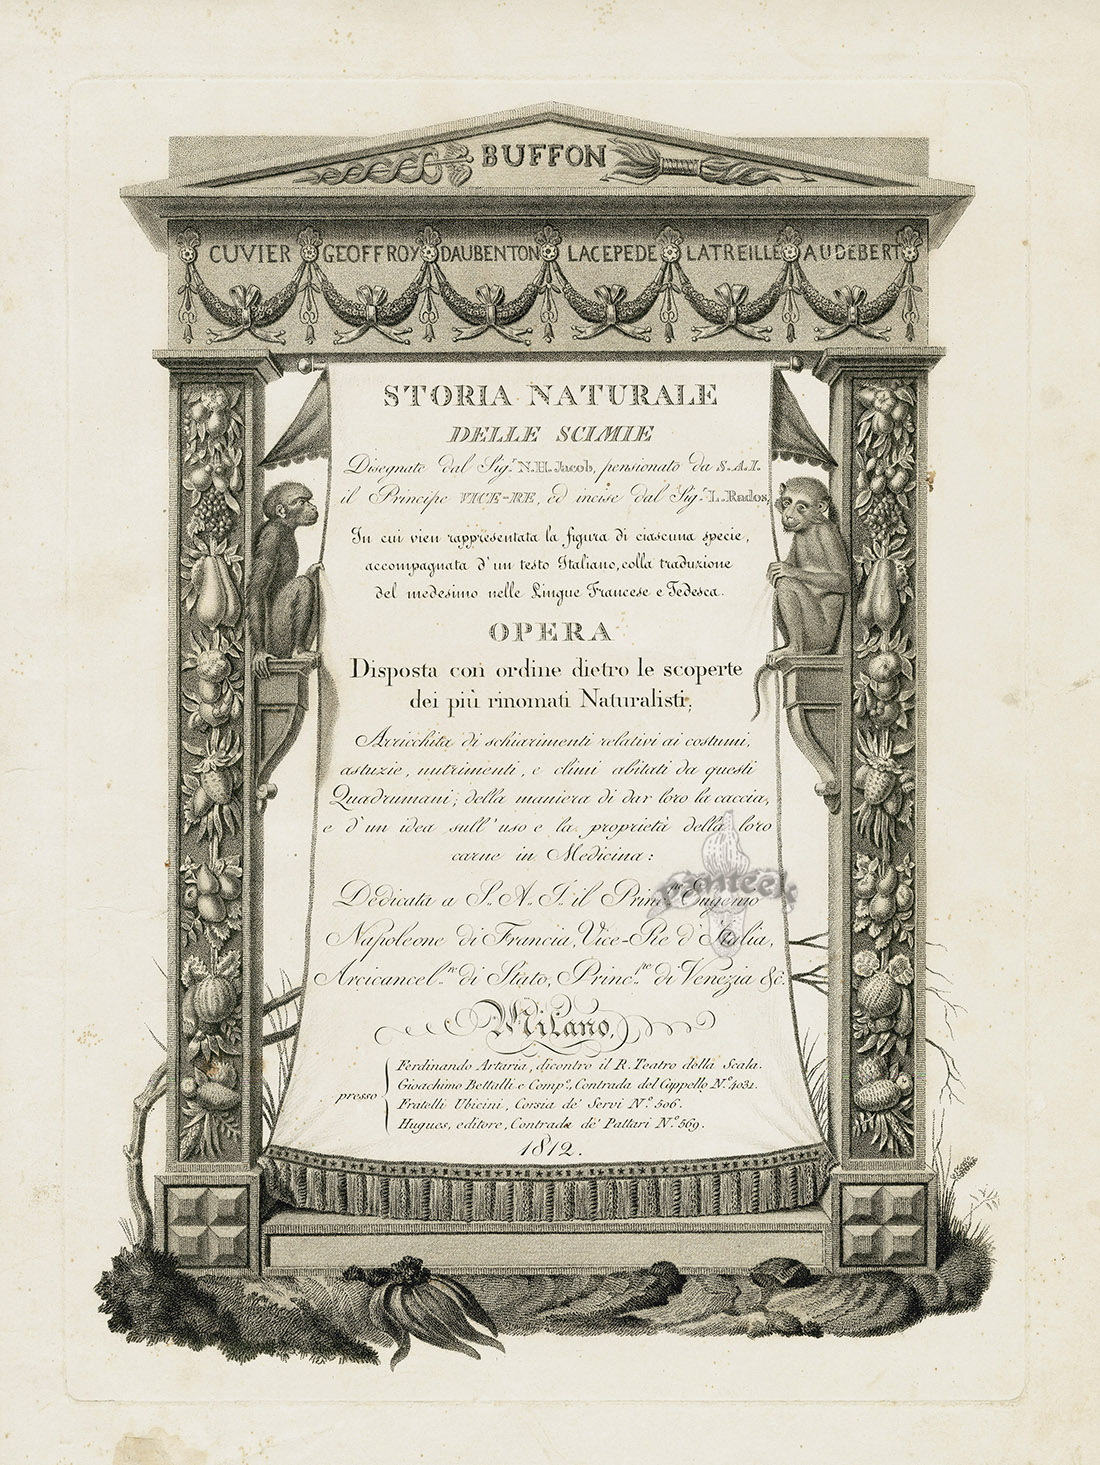 BUFFON
CUVIER GEOFFROY DAUBENTON LACEPEDE LATREILLE AUDEBERT
STORIA NATURALE
DELLE SCIMIE
Disegnate dal Sig.r N.H. Jacob, pensionato da S.A.I.
il Principe VICE-RE, ed incise dal Sig.r L. Rados,
In cui vien rappresentata la figura di ciascuna specie,
accompagnata d'un testo Italiano, colla traduzione
del medesimo nelle Lingue Francese e Tedesca.
OPERA
Disposta con ordine dietro le scoperte
dei più rinomati Naturalisti;
Arricchita di schiarimenti relativi ai costumi,
astuzie, nutrimenti, e climi abitati da questi
Quadrumani; della maniera di dar loro la caccia,
e d'un idea sull'uso e la proprietà della loro
carne in Medicina:
Dedicata a S. A. I. il Prin.pe Eugenio
Napoleone di Francia, Vice-Re d'Italia,
Arcicancel.re di Stato, Princ.pe di Venezia &c.
Milano,
presso
Ferdinando Artaria, dicontro il R. Teatro della Scala.
Gioachino Bettalli e Comp.o, Contrada del Cappello N.o 4031.
Fratelli Ubicini, Corsia de' Servi N.o 506.
Hugues, editore, Contrada de' Pattari N.o 569.
1812.
panteek